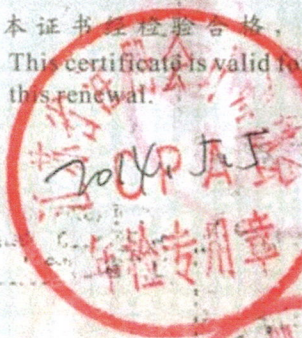 本证书经检验合格,
This certificate is valid fo
this renewal.
2014.5.5
CPA
年检专用章